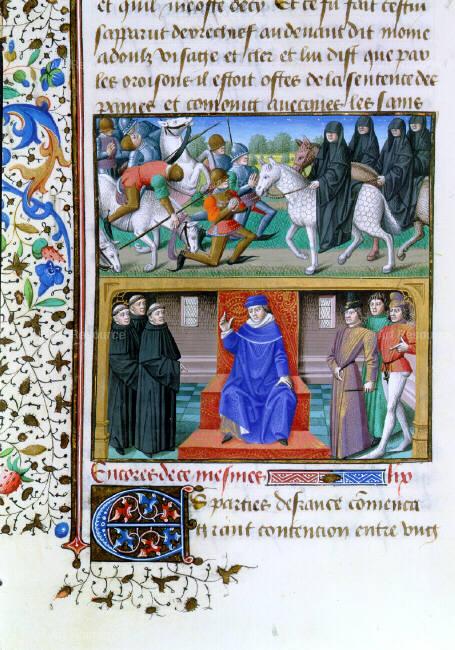 et quil me oste decy Et ce fu fait cestui
sapparut derechief au deuant dit mome
a doulz visage et cler et lui dist que par
les oroisons il estoit ostes de la sentence des
paines et conioinct auecques les sains
Encores de ce mesmes lix
Es parties de france comenca
ung grant contention entre